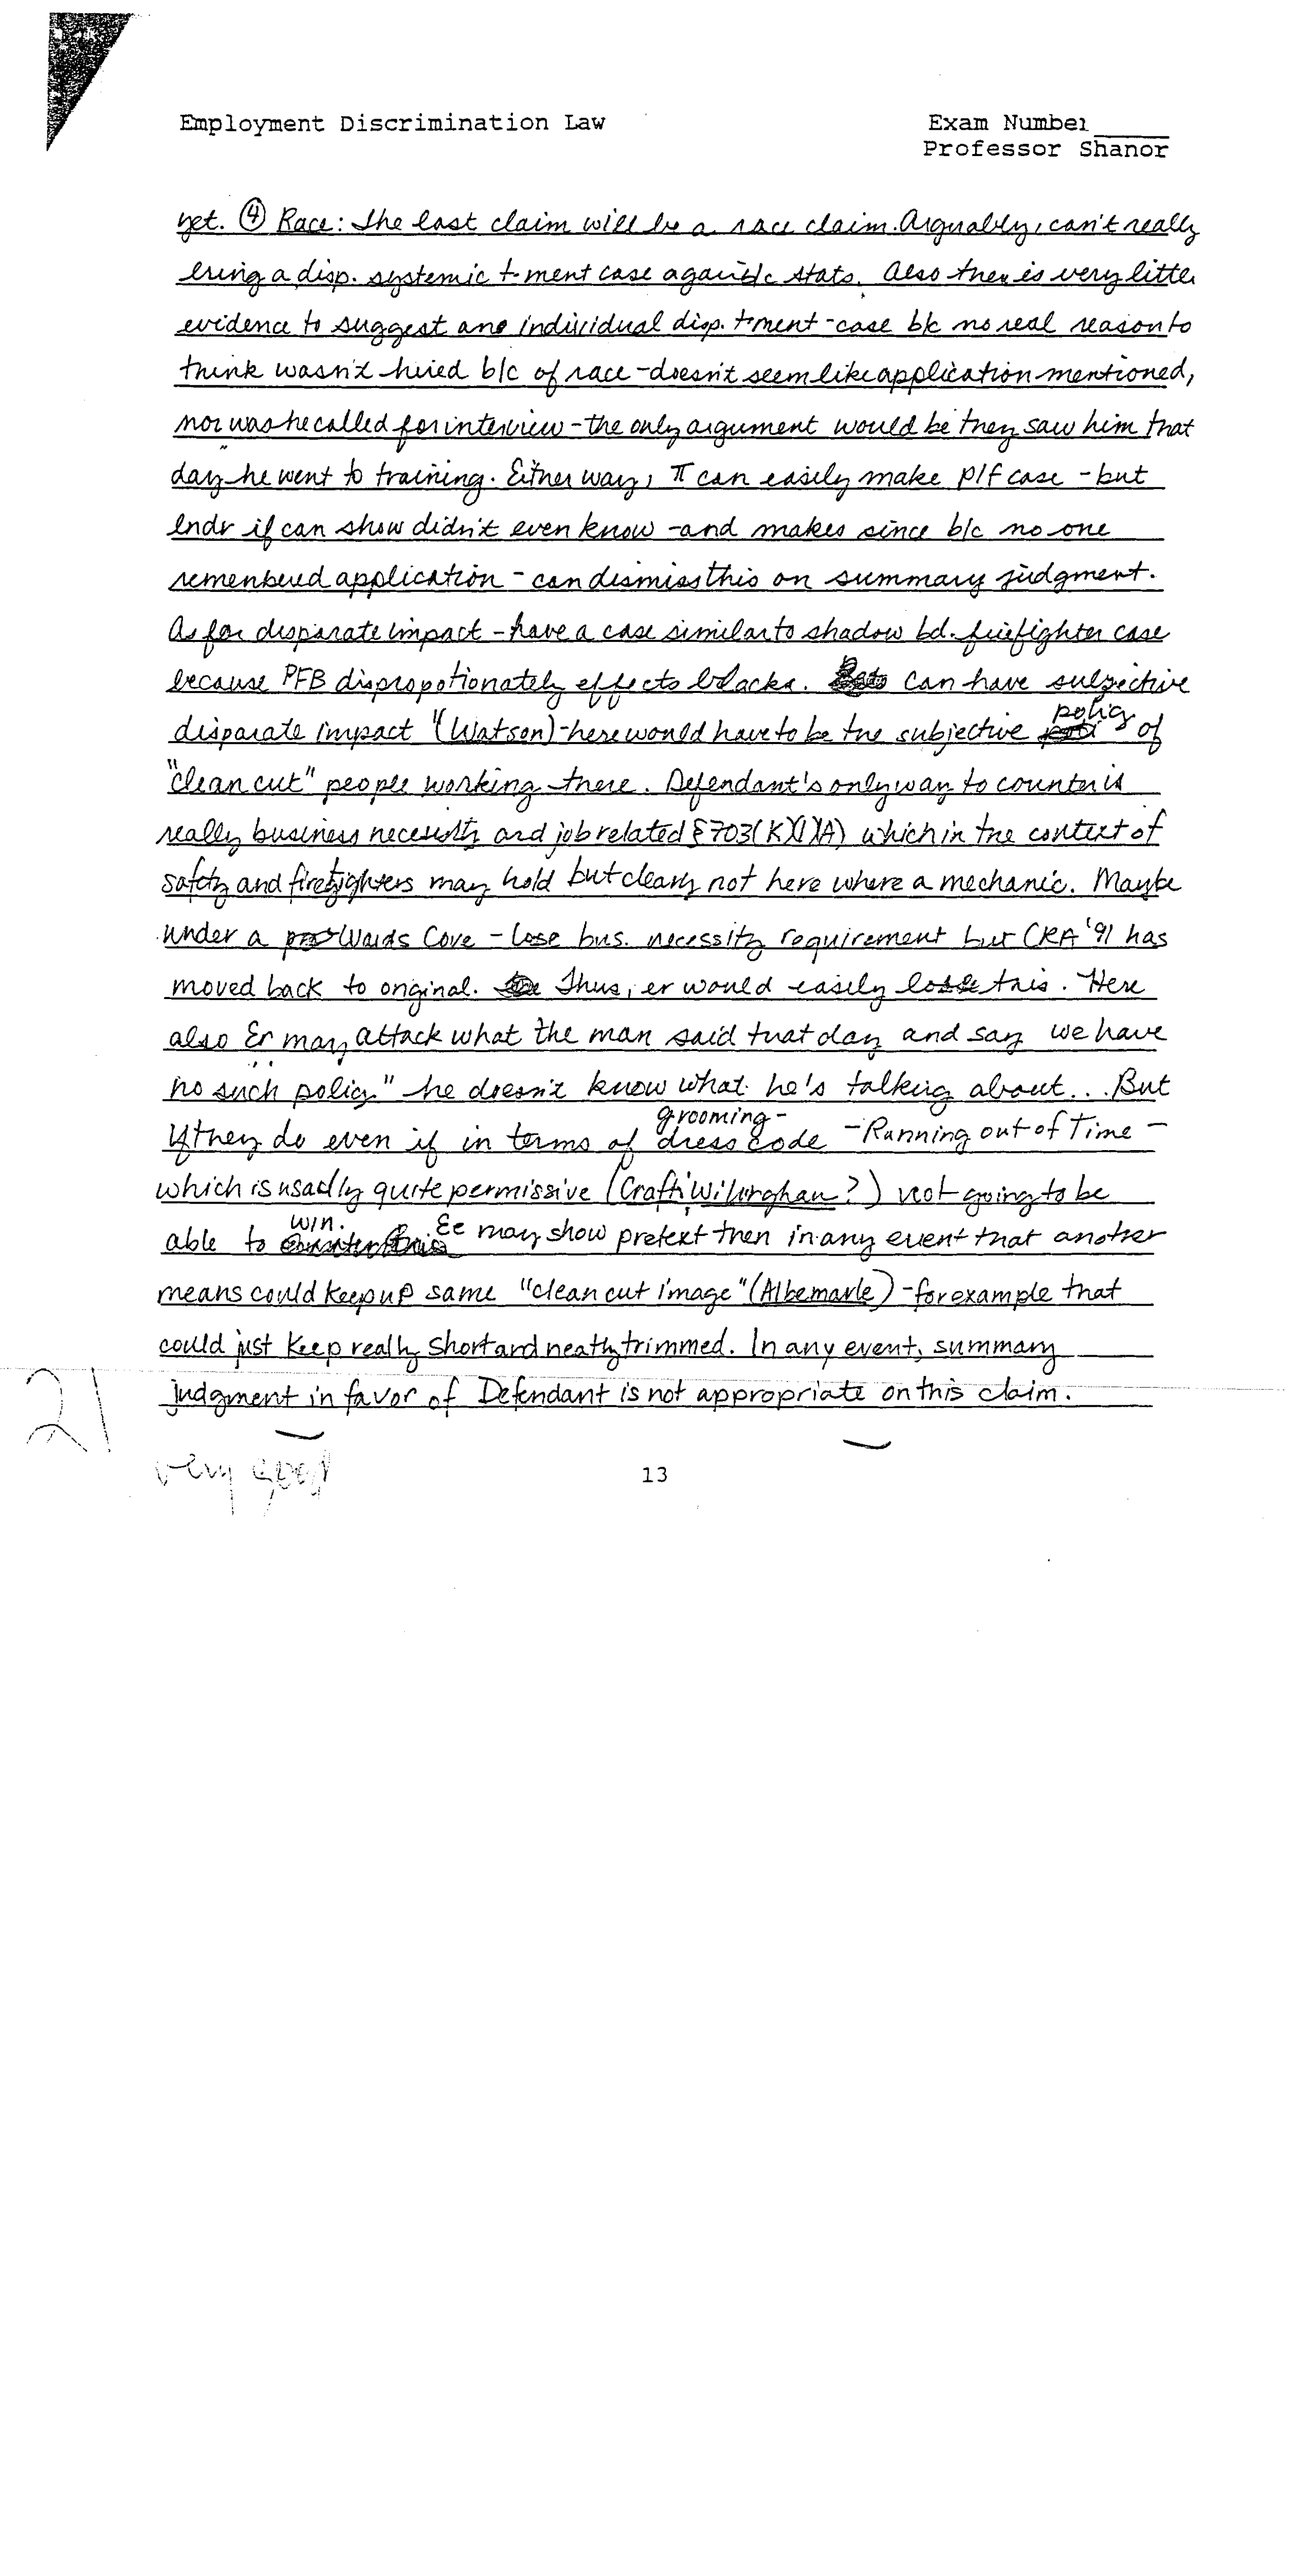 Employment Discrimination Law
Exam Number
Professor Shanor
yet. ④ Race: The last claim will be a race claim. Arguably, can't really
bring a disp. systemic t-ment case again b/c stats. Also there is very little
evidence to suggest an individual disp. t-ment-case b/c no real reason to
think wasn't hired b/c of race - doesn't seem like application mentioned,
nor was he called for interview - the only argument would be they saw him that
day he went to training. Either way, π can easily make p/f case - but
if can show didn't even know - and makes since b/c no one
remenbered application - can dismiss this on summary judgment.
As for disparate impact - have a case similar to shadow bd. firefighter case
because PFB dispropotionately effects blacks. can have subjective
disparate impact (Watson) - here would have to be the subjective policy of
"clean cut" people working there. Defendant's only way to counter is
really business necessity and job related § 703(K)(1)(A) which in the context of
safety and firefighters may hold but clearly not here where a mechanic. Maybe
under a Wards Cove - lose bus. necessity requirement but CRA '91 has
moved back to original. Thus, er would easily lose this. Here
also Er may attack what the man said that day and say we have
no such policy" he doesn't know what he's talking about... But
if they do even if in terms of grooming - dress code - Running out of Time -
which is usually quite permissive (Craft, Willinghan?) not going to be
able to win. Ee may show pretext then in any event that another
means could keep up same "clean cut image" (Albemarle) - for example that
could just keep really short and neatly trimmed. In any event, summary
judgment in favor of Defendant is not appropriate on this claim.
21
very good
13